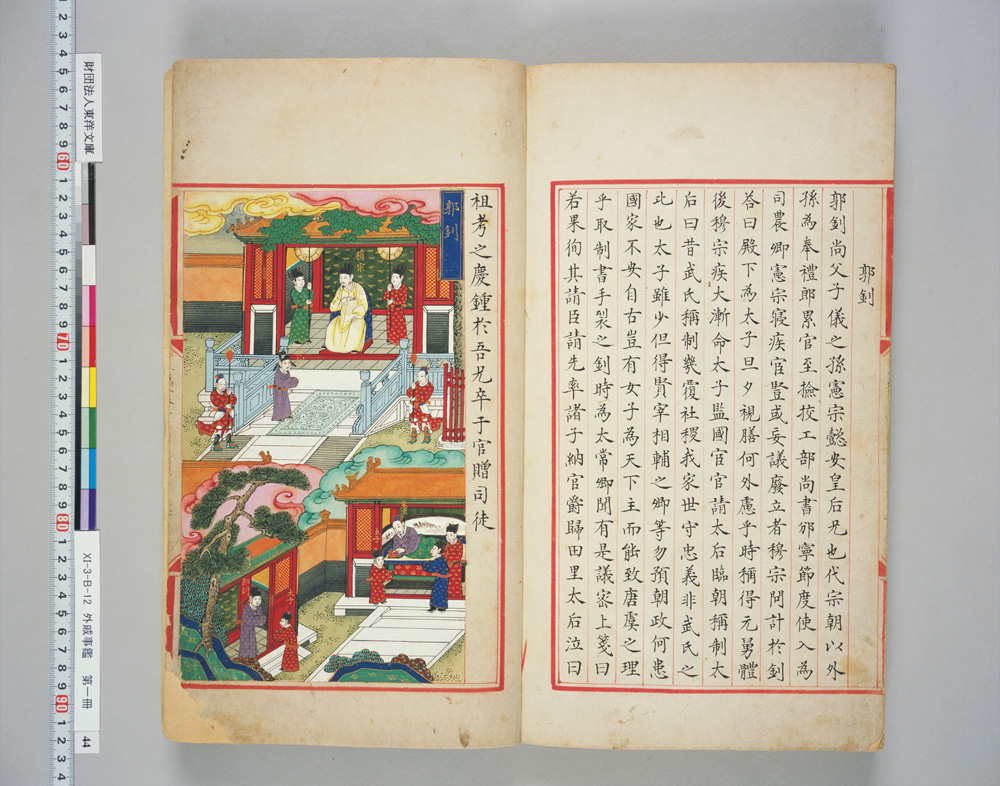 郭釗
郭釗尚父子儀之孫憲宗懿安皇后兄也代宗朝以外
孫為奉禮郎累官至撿挍工部尚書邠寧節度使入為
司農卿憲宗寝疾宦豎或妄議廢立者穆宗問計於釗
荅曰殿下為太子旦夕視膳何外慮乎時稱得元舅體
後穆宗疾大漸命太子監國宦官請太后臨朝稱制太
后曰昔武氏稱制幾覆社稷我家世守忠義非武氏之
比也太子雖少但得賢宰相輔之卿等勿預朝政何患
國家不安自古豈有女子為天下主而能致唐虞之理
乎取制書手裂之釗時為太常卿聞有是議密上箋曰
若果徇其請臣請先率諸子納官爵歸田里太后泣曰
祖考之慶鍾於吾兄卒于官贈司徒
郭釗
穆宗
財団法人東洋文庫
XI-3-B-12 外戚事鑑 第一冊 44
2 3 4 5 6 7 8 9 60 1 2 3 4 5 6 7 8 9 70 1 2 3 4 5 6 7 8 9 80 1 2 3 4 5 6 7 8 9 90 1 2 3 4